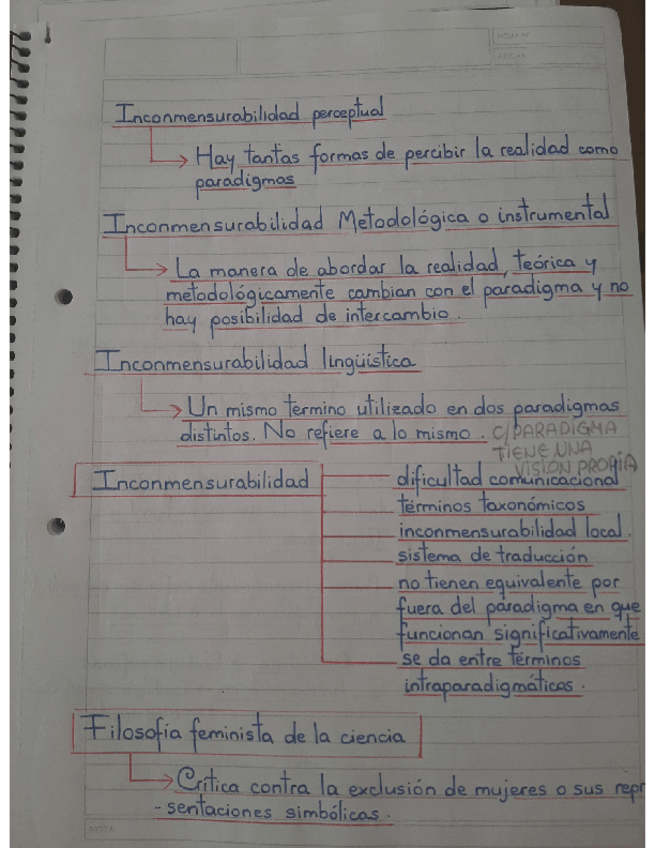 HOJA Nº
FECHA
Inconmensurabilidad perceptual
Hay tantas formas de percibir la realidad como
paradigmas
Inconmensurabilidad Metodológica o instrumental
La manera de abordar la realidad, teórica y
metodológicamente cambian con el paradigma y no
hay posibilidad de intercambio.
Inconmensurabilidad lingüistica
Un mismo termino utilizado en dos paradigmas
distintos. No refiere a lo mismo.
C/PARADIGMA
TIENE UNA
VISION PROPIA
Inconmensurabilidad
dificultad comunicacional
términos taxonómicos
inconmensurabilidad local.
sistema de traducción
no tienen equivalente por
fuera del paradigma en que
funcionan significativamente
se da entre términos
intraparadigmáticos.
Filosofia feminista de la ciencia
Crítica contra la exclusión de mujeres o sus repr
-sentaciones simbólicas.
NOTA